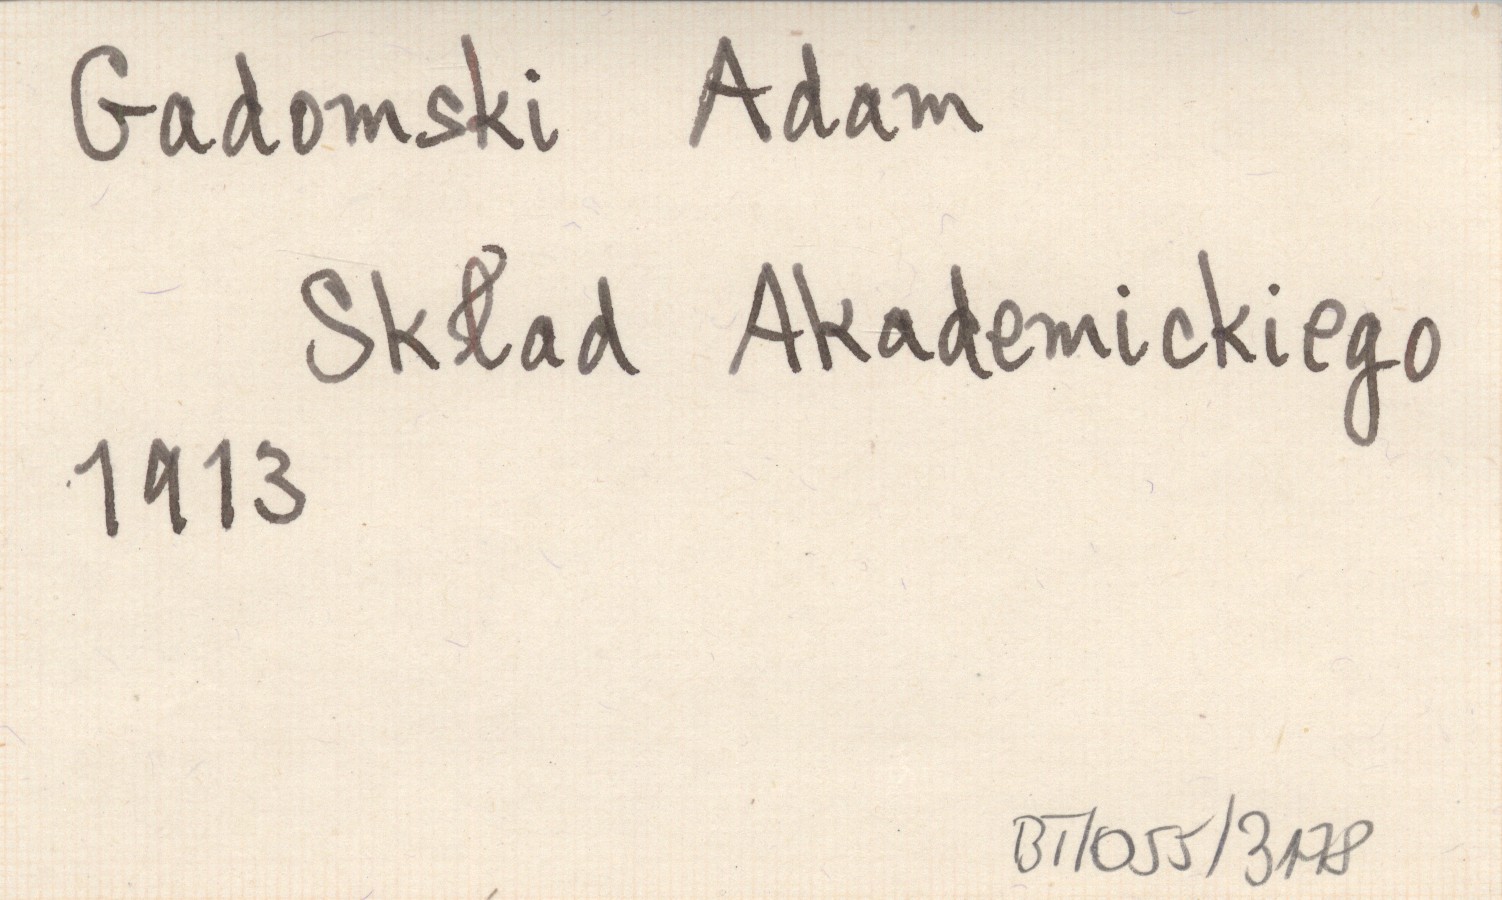 Gadomski Adam
Skład Akademickiego
1913
BT/055/3178